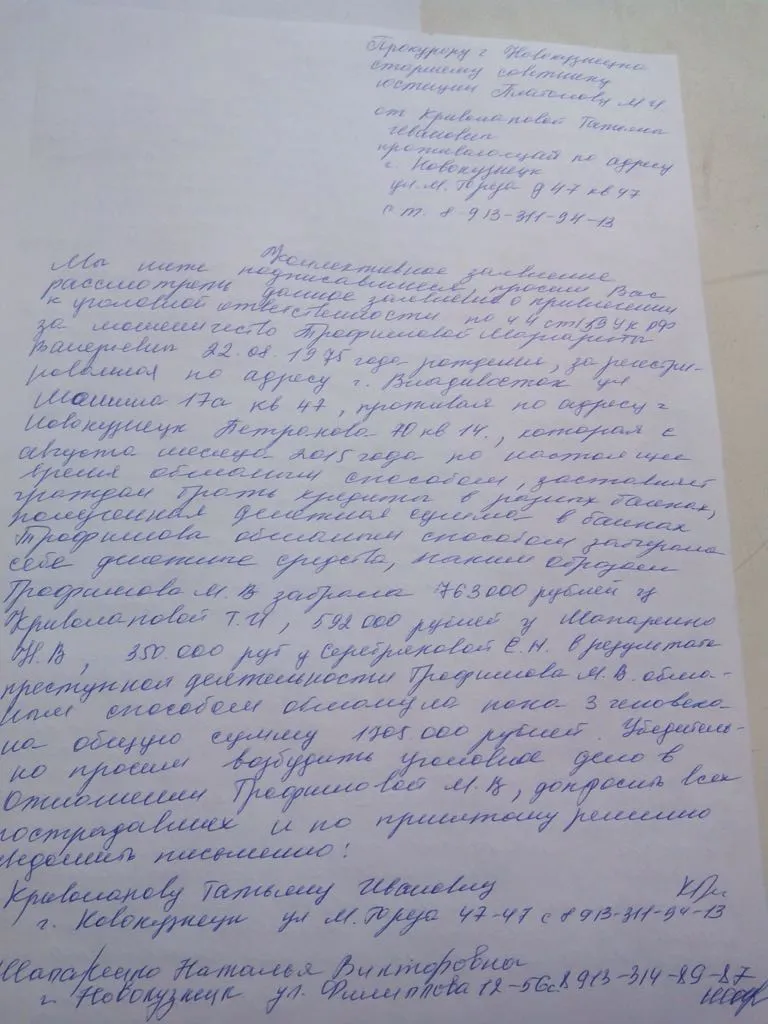 Прокурору г Новокузнецка
старшему советнику
юстиции Платонову М И
от Криволаповой Татьяны
Ивановны
проживающей по адресу
г Новокузнецк
ул М. Тореза д 47 кв 47
с т. 8-913-311-94-13
Коллективное заявление
Мы ниже подписавшиеся, просим Вас
рассмотреть данное заявление о привлечении
к уголовной ответственности по ч 4 ст 159 УК РФ
за мошенничество Трофимовой Маргариты
Валерьевны 22.08.1975 года рождения, зарегистри-
рованная по адресу г. Владивосток ул
17а кв 47, проживая по адресу г
Новокузнецк Петракова 70 кв 14., которая с
августа месяца 2015 года по настоящее
время обманным способом, заставляет
граждан брать кредиты в разных банках,
полученная денежная сумма в банках
Трофимова обманным способом забирала
себе денежные средства, таким образом
Трофимова М. В забрала 763000 рублей у
Криволаповой Т. И, 592000 рублей у Шапаренко
Н. В, 350.000 руб у Серебряковой Е. Н. в результате
преступной деятельности Трофимова М. В. обма-
ным способом обманула пока 3 человека
на общую сумму 1705000 рублей. Убедитель-
но просим возбудить уголовное дело в
отношении Трофимовой М. В, допросить всех
пострадавших и по принятому решению
уведомить письменно!
Кривопапову Татьяну Ивановну
г. Новокузнецк ул М. Тореза 47-47 с 8 913-311-94-13
Шапаренко Наталья Викторовна
г. Новокузнецк ул. Филиппова 12-56 с 8 913-314-89-87